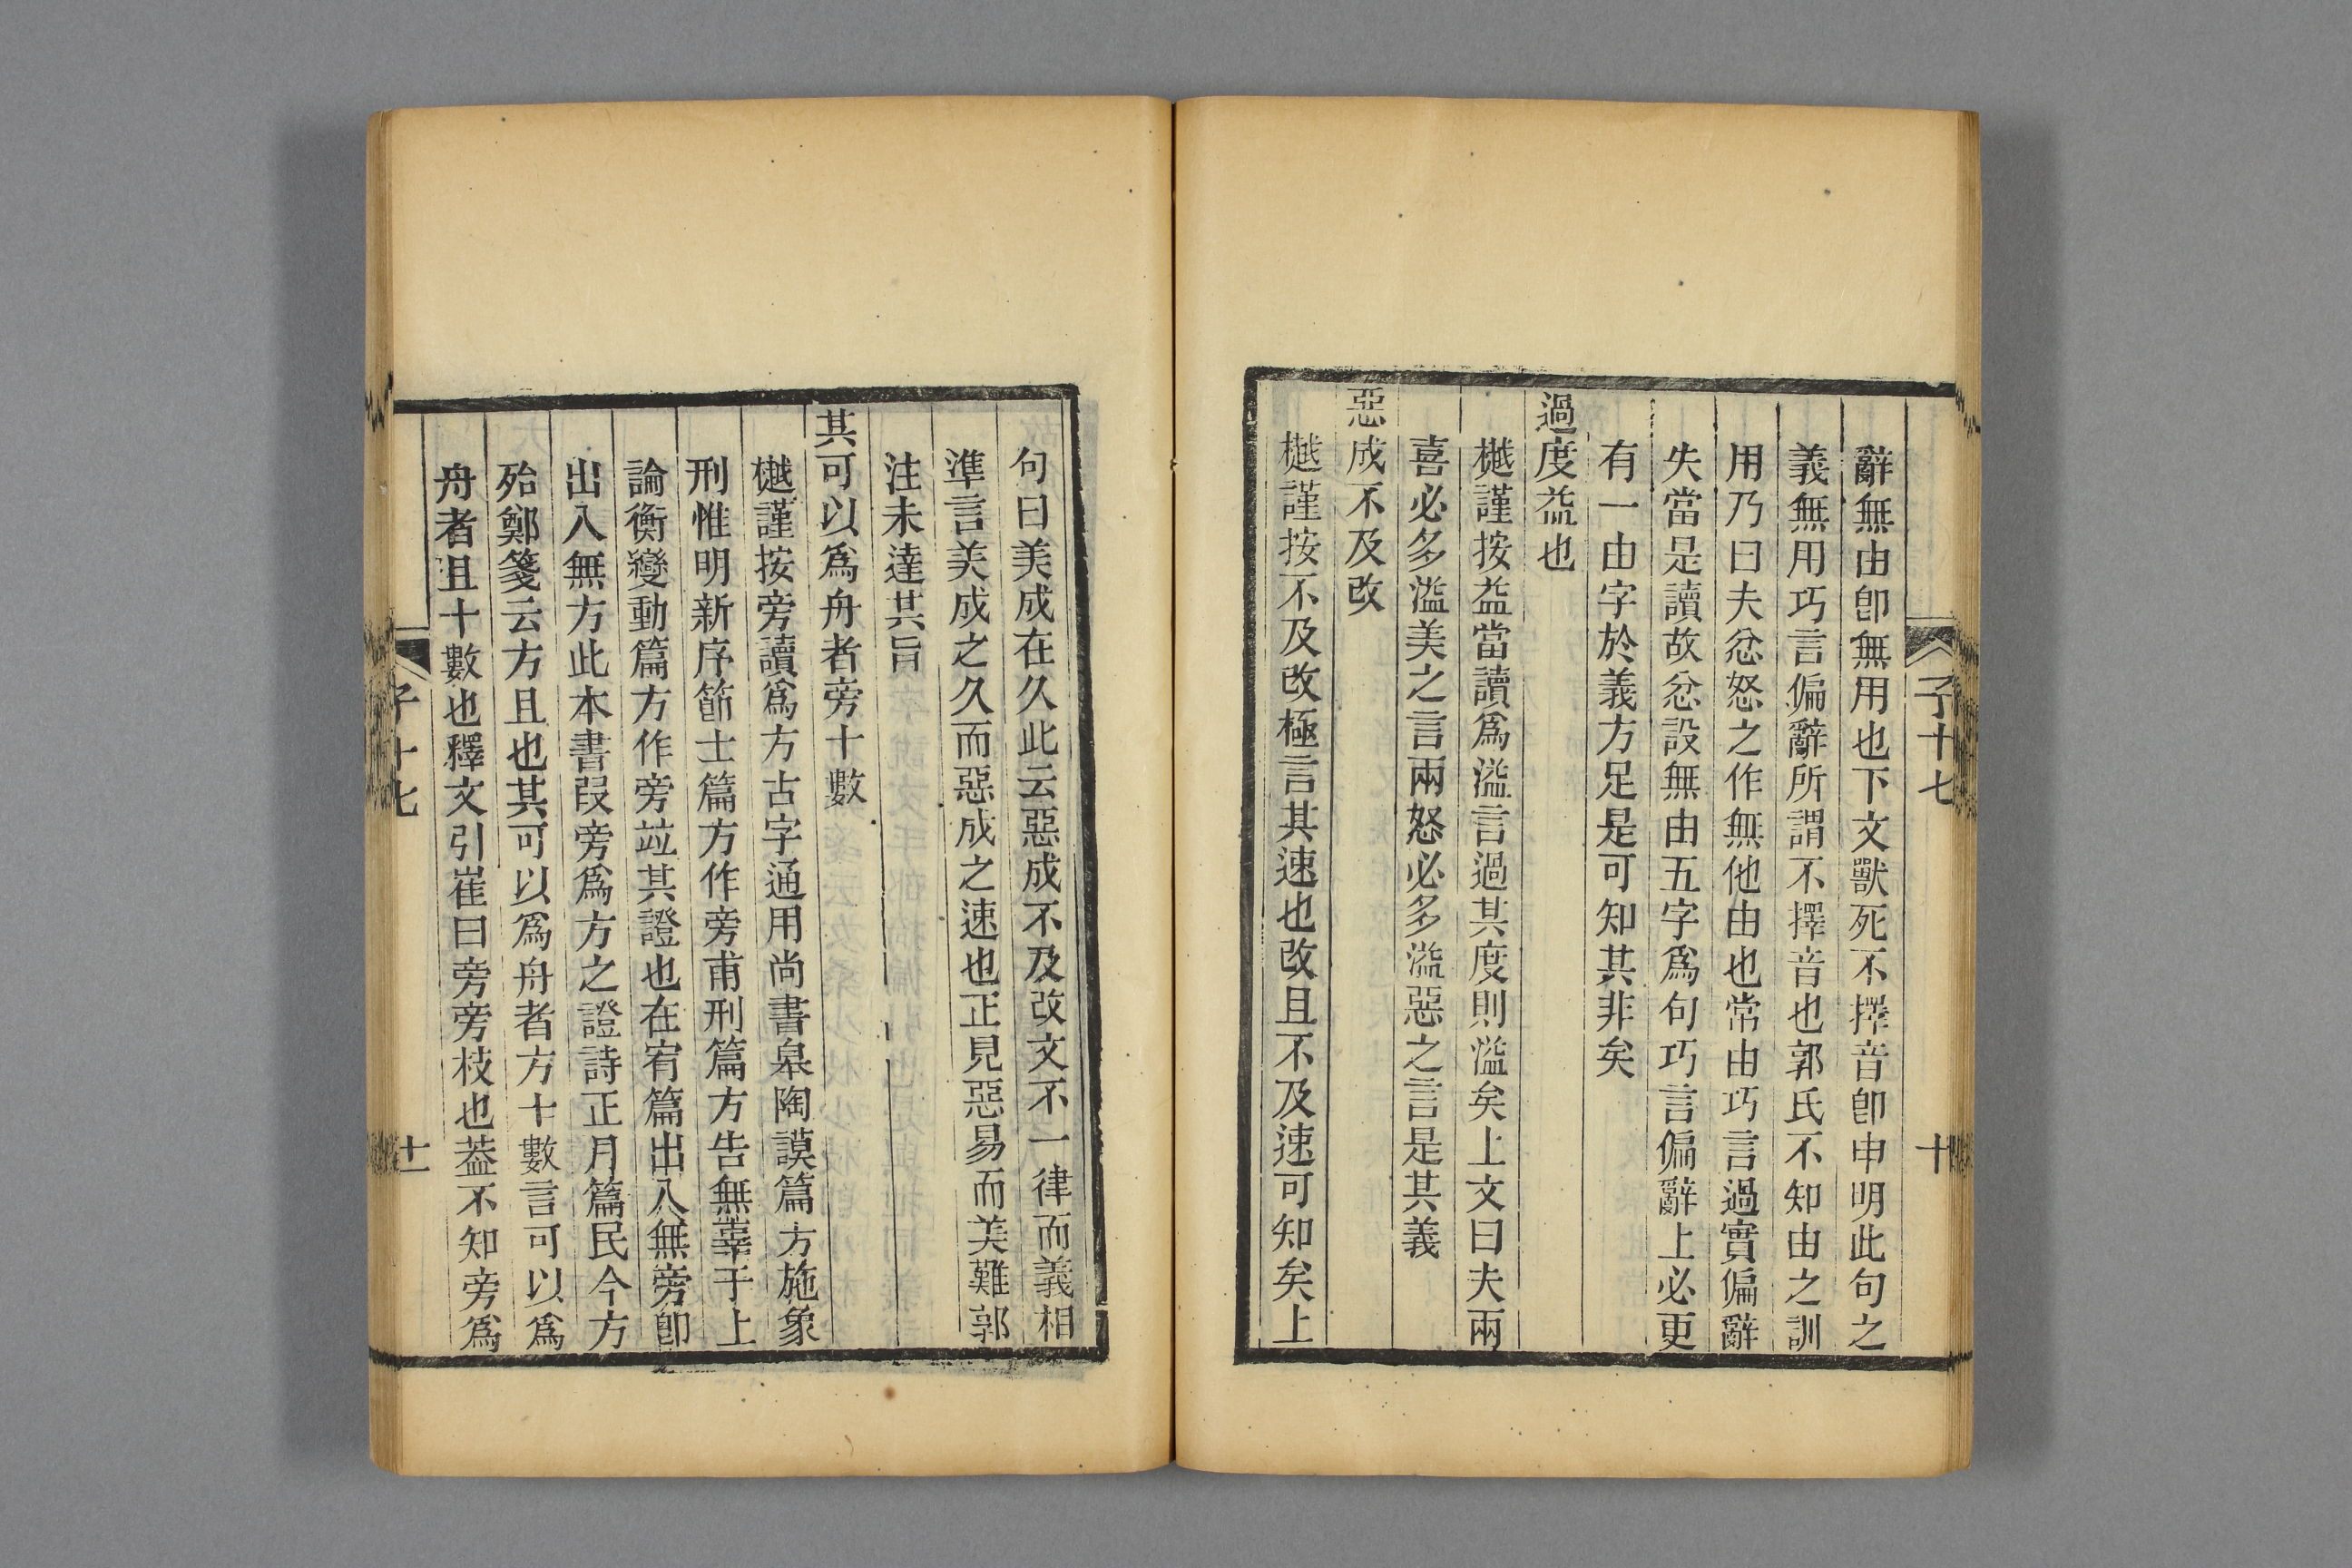 子十七
十
辭無由卽無用也下文獸死不擇音卽申明此句之
義無用巧言偏辭所謂不擇音也郭氏不知由之訓
用乃曰夫忿怒之作無他由也常由巧言過實偏辭
失當是讀故忿設無由五字爲句巧言偏辭上必更
有一由字於義方足是可知其非矣
過度益也
樾謹按益當讀爲溢言過其度則溢矣上文曰夫兩
喜必多溢美之言兩怒必多溢惡之言是其義
惡成不及改
樾謹按不及改極言其速也改且不及速可知矣上
句曰美成在久此云惡成不及改文不一律而義相
準言美成之久而惡成之速也正見惡易而美難郭
注未達其旨
其可以爲舟者旁十數
樾謹按旁讀爲方古字通用尚書皋陶謨篇方施象
刑惟明新序節士篇方作旁甫刑篇方告無辜于上
論衡變動篇方作旁竝其證也在宥篇出入無旁卽
出入無方此本書叚旁爲方之證詩正月篇民今方
殆鄭箋云方且也其可以爲舟者方十數言可以爲
舟者且十數也釋文引崔曰旁旁枝也葢不知旁爲
子十七
十一